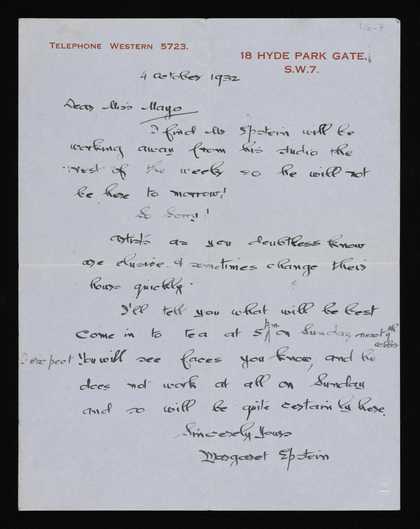 Telephone Western 5723.
18 HYDE PARK GATE,
S.W.7.
4 October 1932
Dear Miss Mayo
I find Mr Epstein will be
working away from his studio the
rest of the week so he will not
be here to morrow!
So Sorry!
Artists as you doubtless know
are elusive & sometimes change their
hours quickly.
I'll tell you what will be best
Come in to tea at 5 pm on Sunday next 9th
I expect You will see faces you know, and he
does not work at all on Sunday
and so will be quite certain here.
Sincerely Yours
Margaret Epstein